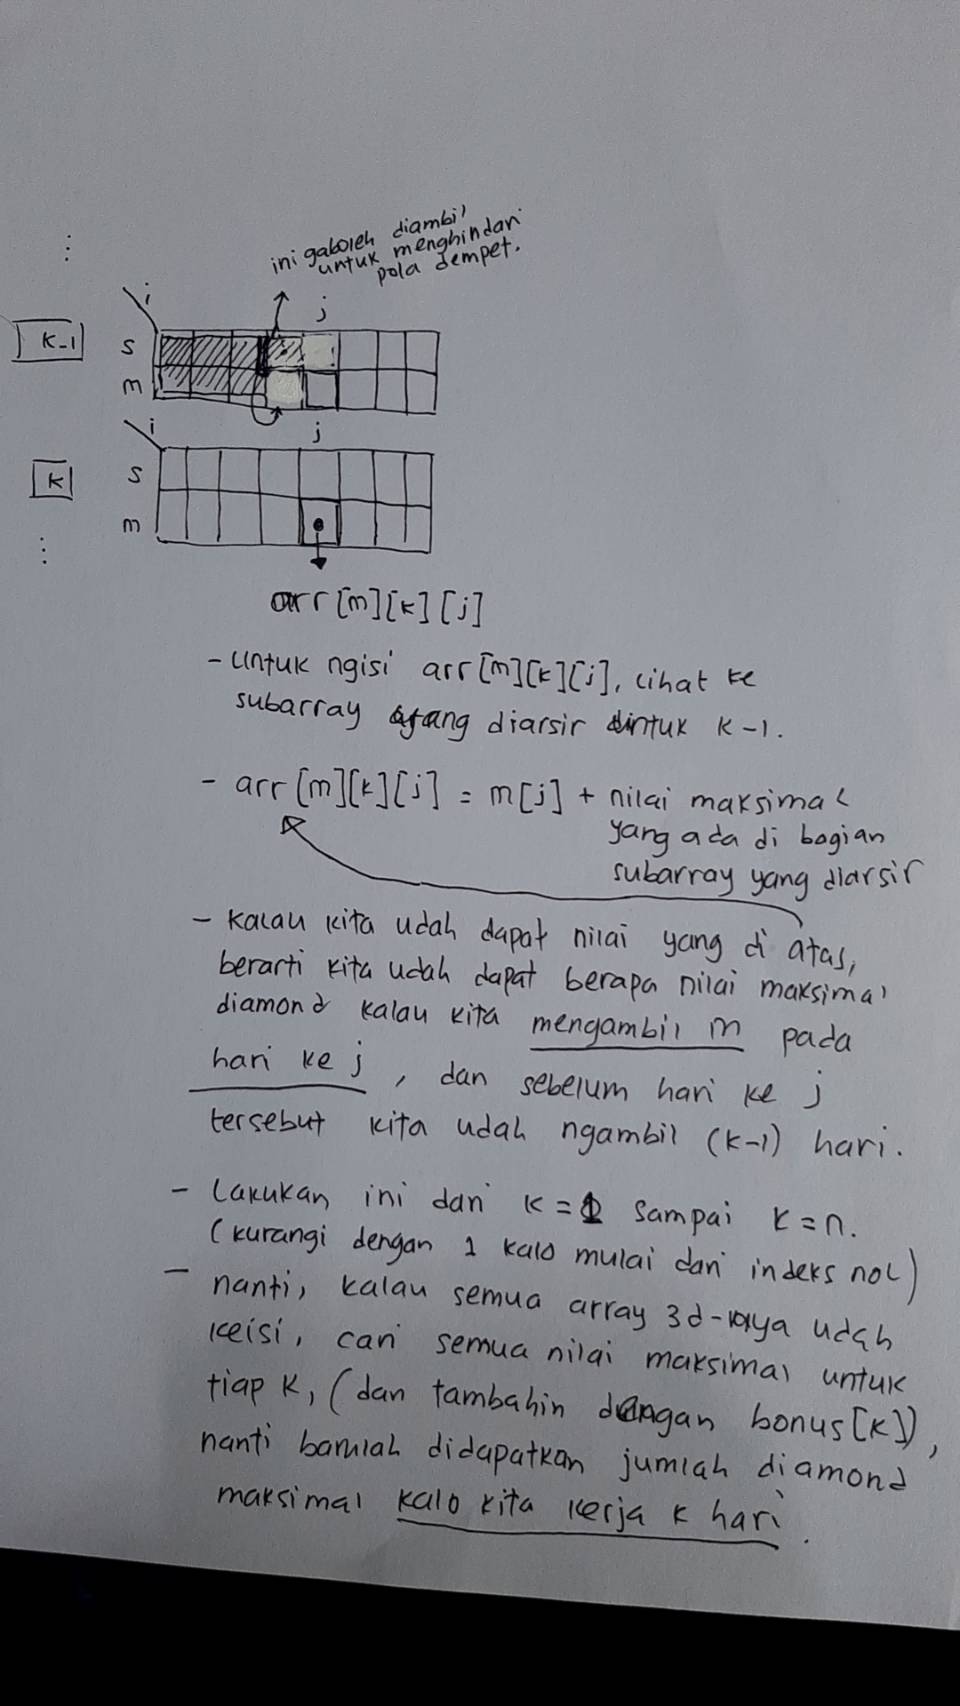 ini gaboleh diambil
untuk menghindari
pola dempet.
i
j
k-1
s
m
i
j
k
s
m
arr [m][k][j]
- Untuk ngisi arr[m][k][j], lihat ke
subarray yang diarsir untuk k-1.
- arr[m][k][j] = m[j] + nilai maksimal
yang ada di bagian
subarray yang diarsir
- Kalau kita udah dapat nilai yang di atas,
berarti kita udah dapat berapa nilai maksimal
diamond kalau kita mengambil m pada
hari ke j, dan sebelum hari ke j
tersebut kita udah ngambil (k-1) hari.
- Lakukan ini dari k=1 sampai k=n.
(kurangi dengan 1 kalo mulai dari indeks nol)
- nanti, kalau semua array 3d-nya udah
keisi, cari semua nilai maksimal untuk
tiap k, (dan tambahin dengan bonus[k]),
nanti barulah didapatkan jumlah diamond
maksimal kalo kita kerja k hari.